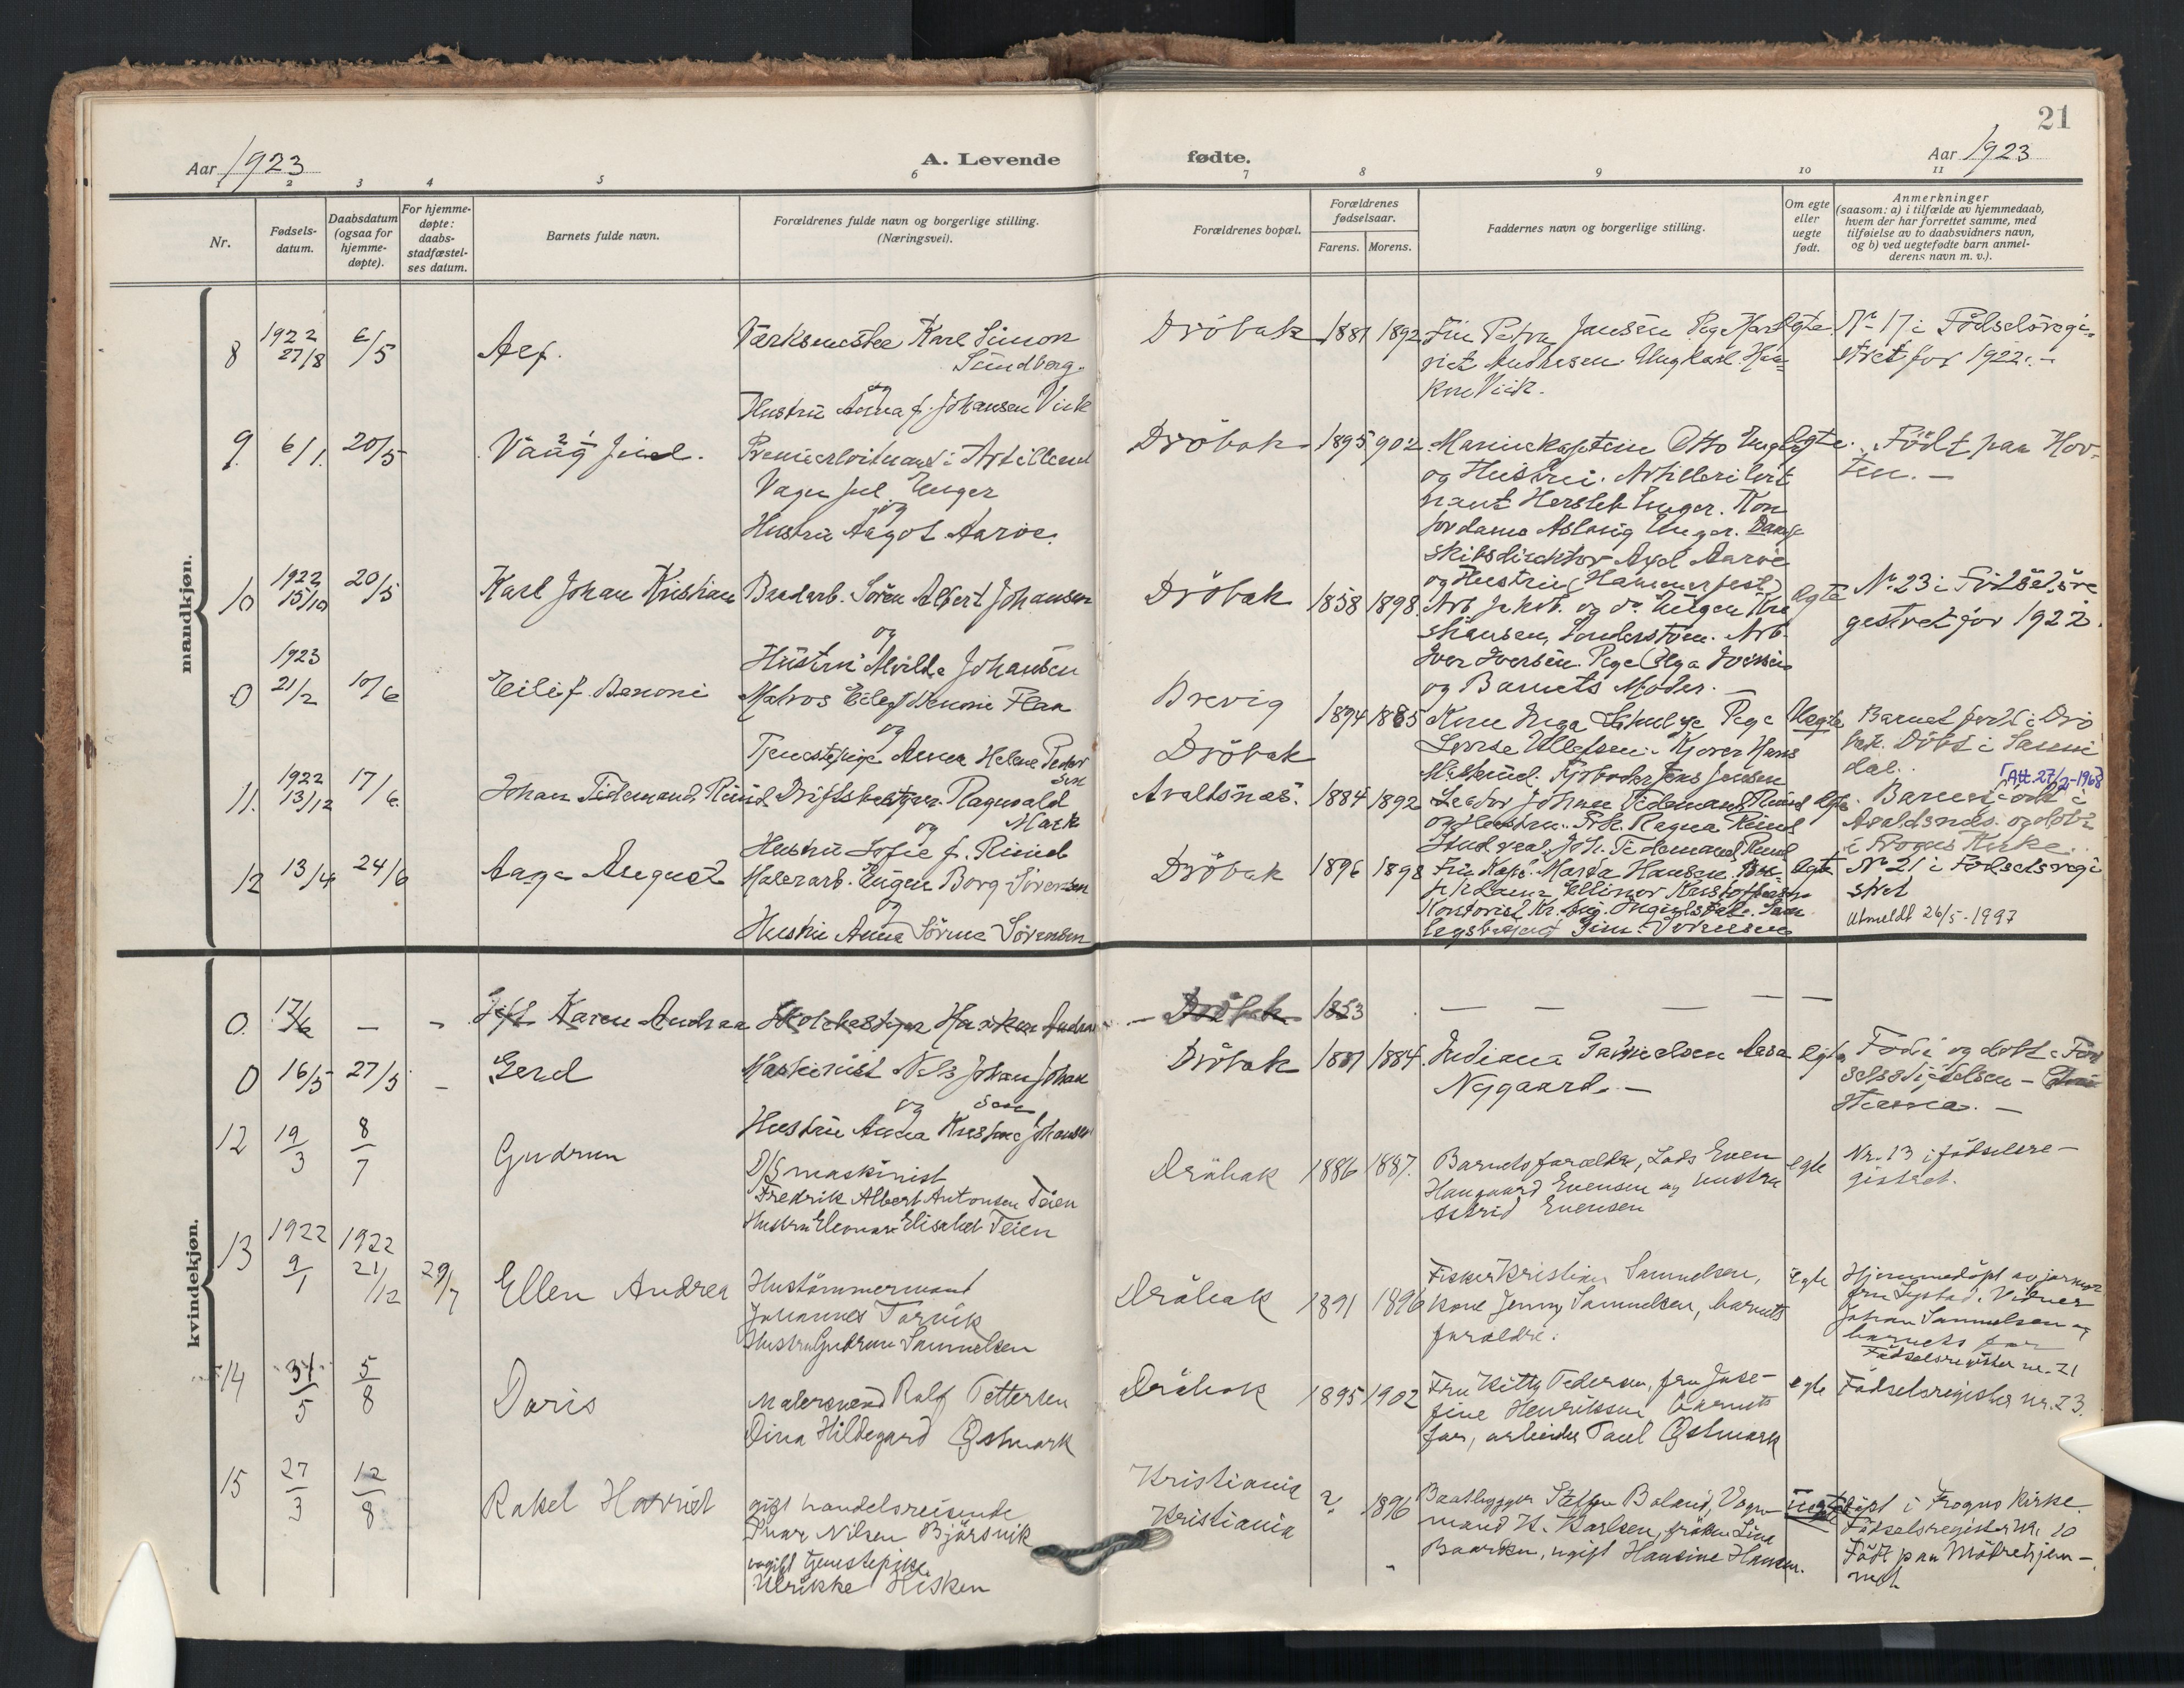 21
Aar 1923
A. Levende
fødte.
Aar 1923
1 2 3 4 5 6 7 8 9 10 11
Nr.
Fødsels-
datum.
Daabsdatum
(ogsaa for
hjemme-
døpte).
For hjemme-
døpte:
daabs-
stadfæstel-
ses datum.
Barnets fulde navn.
Forældrenes fulde navn og borgerlige stilling.
(Næringsvei).
Forældrenes bopæl.
Forældrenes
fødselsaar.
Farens. Morens.
Faddernes navn og borgerlige stilling.
Om egte
eller
uegte
født.
Anmerkninger
(saasom: a) i tilfælde av hjemmedaab,
hvem der har forrettet samme, med
tilføielse av to daabsvidners navn,
og b) ved uegtefødte barn anmel-
derens navn m. v.).
mandkjøn.
8
1922
27/8
6/5
Alf.
Karl Simon
Sundberg.
og
Hustru Anna f. Johansen Viik
Dröbak
1881 1892
Fru Petra Jansen Pige
Ungkarl
Viik.
egte
No 17 i Födselsregi-
stret for 1922. -
9.
6/1.
20/5
Jul.
i Artilleriet
Jul. Unger
og
Hustru Aagot Aarøe.
Dröbak
1895 902
Marinekaptein Otto Unger
og Hustru. Artilleriløit
nant Hersleb Unger.
Aslaug Unger.
Axel Aarøe
og Hustru (Hammerfest)
egte.
Födt paa Hov-
ten. -
10
1922
15/10
20/5
Karl Johan Kristian
Sören Albert Johansen
og
Hustru Alvilde Johansen
Dröbak
1858 1898.
Arb
Iver Iversen. Pige Olga Iversen
og Barnets Moder. -
egte
No. 23 i Födselsre
gestret for 1922.
0
1923
21/2
10/6
Eilif Benoni
Matros Eilef Benoni Flaa
og
Tjenestepige Anna Helene Peder
sen
Brevig
Dröbak
1894 1885
Inga Pige
Lovise Ullefsen.
Jens Jensen
Uegte
Barnet födt i Drö
bak. Döbt i Sanni
dal.
11.
1922
13/12
17/6
Johan Tidemand Ruud
Driftsbestyrer Ragnvald
og Mark
Hustru Sofie f. Ruud
Avaldsnäs.
1884 1892
Lektor Johan Tidemand Ruud
og Hustru. Frk. Ragna Ruud
Stud. real. Joh. Tidemand Ruud
egte.
[Att. 27/2-1968]
Barnet födt i
Avaldsnäs og döbt
i Frogns Kirke.
12
13/4
24/6
Aage August
Malerarb. Eugen Borg Sörensen
og
Hustru Anna Sörine Sörensen
Dröbak
1896 1898
Fru Kapt. Marta Hansen.
Ellinor Kristoffersen
Kontorist Kr. Aug. Ingulstad.
Sörensen
egte
No 21 i Födselsregi
stret
Utmeldt 26/5-1997
kvindekjøn.
0.
17/2
-
-
Karen Andrea
- Dröbak
1853
- - - - -
0
16/5
27/5
-
Gerd
Maskinist Nils Johan Johan
og sen
Hustru Anna Kristine Johansen
Dröbak
1881 1884.
Indiana Danielsen
Nygaard. -
egte
Födt og döbt i Föd
selsstiftelsen -
12
19/3
8/7
Gudrun
D/S maskinist
Fredrik Albert Antonsen Teien
Hustru Eleonore Elisabet Teien
Dröbak
1886 1887.
Barnets foreldre, Lods Even
Haugaard Evensen og hustru
Astrid Evensen
egte
Nr. 13 i födselsre-
gistret.
13
1922
9/1
1922
21/12
29/7
Ellen Andrea
Hustömmermand
Johannes Torvik
Hustru Gudrun Samuelsen
Dröbak
1891 1896
Fisker Kristian Samuelsen,
kone Jenny Samuelsen, barnets
foreldre.
egte
Hjemmedöpt av jormor
fru Systad. Vidner
Johan Samuelsen og
barnets far
Födselsregister nr. 21
14
31/5
5/8
Doris
Malersvend Rolf Pettersen
Dina Hildegard Östmark
Dröbak
1895 1902
Fru Kitty Pedersen, fru Jose-
fine Henriksen, barnets
far, arbeider Paul Östmark
egte
Födselsregister nr. 23.
15
27/3
12/8
Rakel Harriet
gift handelsreisende
Einar Nilsen Bjørsvik
ugift tjenestepike
Ulrikke Hisken
Kristiania
Kristiania
? 1896
Baatbygger Boland, Vogn-
mand K. Karlsen, fröken Lina
Baarsen, ugift Hansine Hansen.
uegte
Döpt i Frogns Kirke.
Födselsregister nr. 20
Födt paa Mödrehjem-
met